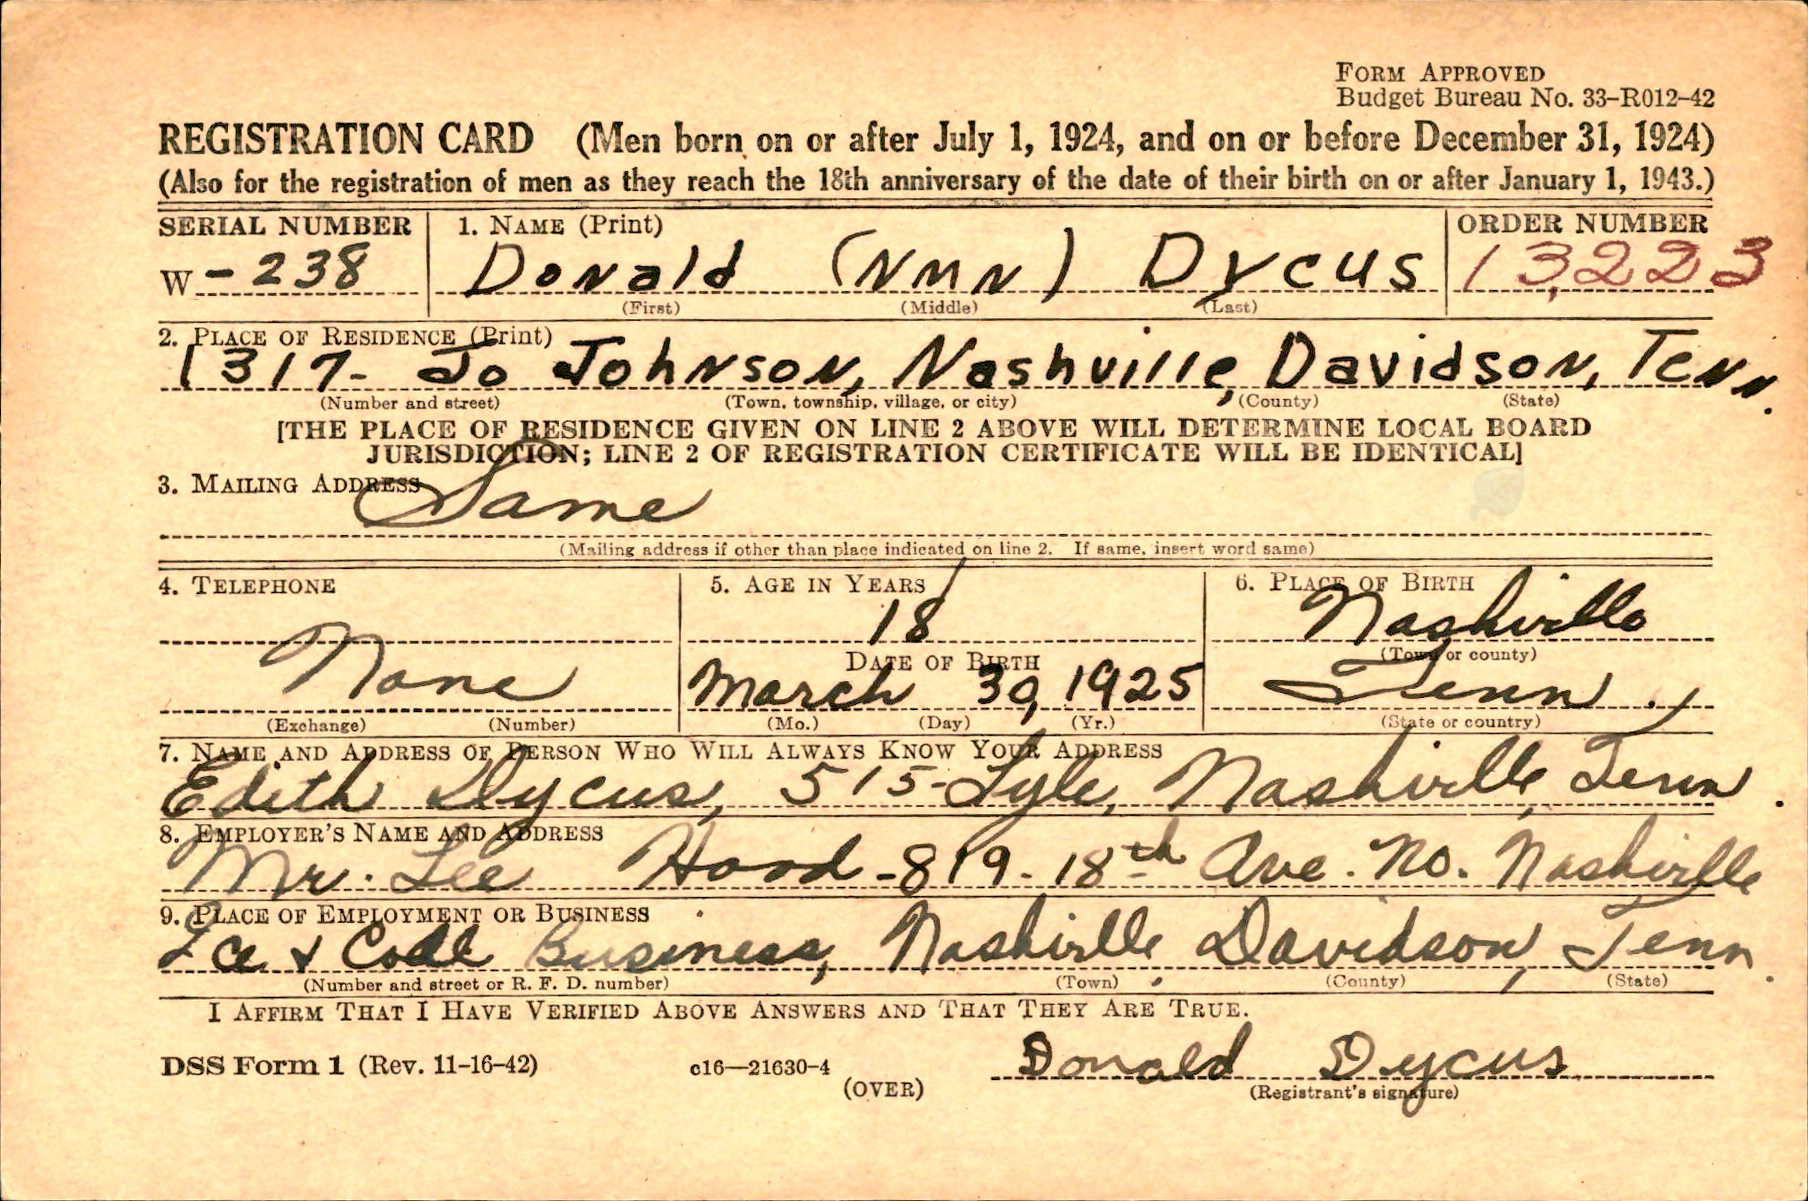 FORM APPROVED
Budget Bureau No. 33-R012-42
REGISTRATION CARD (Men born on or after July 1, 1924, and on or before December 31, 1924)
(Also for the registration of men as they reach the 18th anniversary of the date of their birth on or after January 1, 1943.)
SERIAL NUMBER 1. NAME (Print) ORDER NUMBER
W - 238 Donald (NMN) Dycus 13,223
(First) (Middle) (Last)
2. PLACE OF RESIDENCE (Print)
1317- Jo Johnson, Nashville, Davidson, Tenn.
(Number and street) (Town, township, village, or city) (County) (State)
[THE PLACE OF RESIDENCE GIVEN ON LINE 2 ABOVE WILL DETERMINE LOCAL BOARD
JURISDICTION; LINE 2 OF REGISTRATION CERTIFICATE WILL BE IDENTICAL]
3. MAILING ADDRESS
Same
(Mailing address if other than place indicated on line 2. If same, insert word same)
4. TELEPHONE 5. AGE IN YEARS 6. PLACE OF BIRTH
18 Nashville
DATE OF BIRTH (Town or county)
None March 30, 1925 Tenn.
(Exchange) (Number) (Mo.) (Day) (Yr.) (State or country)
7. NAME AND ADDRESS OF PERSON WHO WILL ALWAYS KNOW YOUR ADDRESS
Edith Dycus, 515-Lyle, Nashville, Tenn.
8. EMPLOYER'S NAME AND ADDRESS
Mr. Lee Hood -819- 18th Ave. No. Nashville
9. PLACE OF EMPLOYMENT OR BUSINESS
Ice & Coal Business, Nashville, Davidson, Tenn.
(Number and street or R. F. D. number) (Town) (County) (State)
I AFFIRM THAT I HAVE VERIFIED ABOVE ANSWERS AND THAT THEY ARE TRUE.
DSS Form 1 (Rev. 11-16-42) c16—21630-4 Donald Dycus
(OVER) (Registrant's signature)